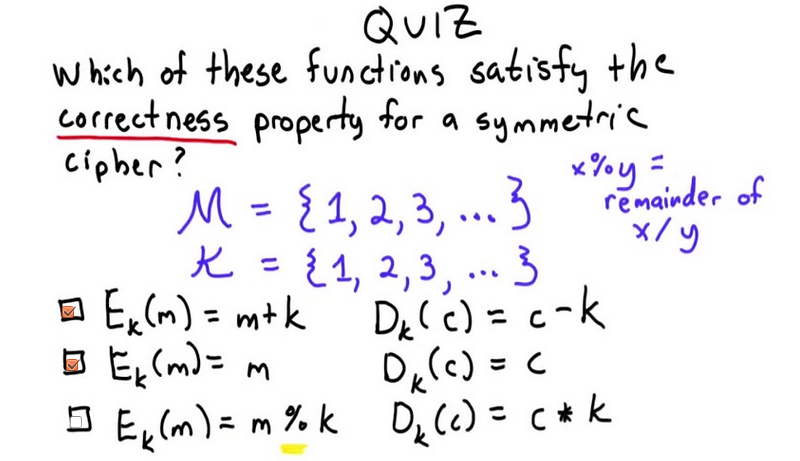 QUIZ
Which of these functions satisfy the
correctness property for a symmetric
cipher?
x%y =
remainder of
x/y
M = {1, 2, 3, ... }
K = {1, 2, 3, ... }
E_k(m) = m+k D_k(c) = c-k
E_k(m) = m D_k(c) = c
E_k(m) = m % k D_k(c) = c * k